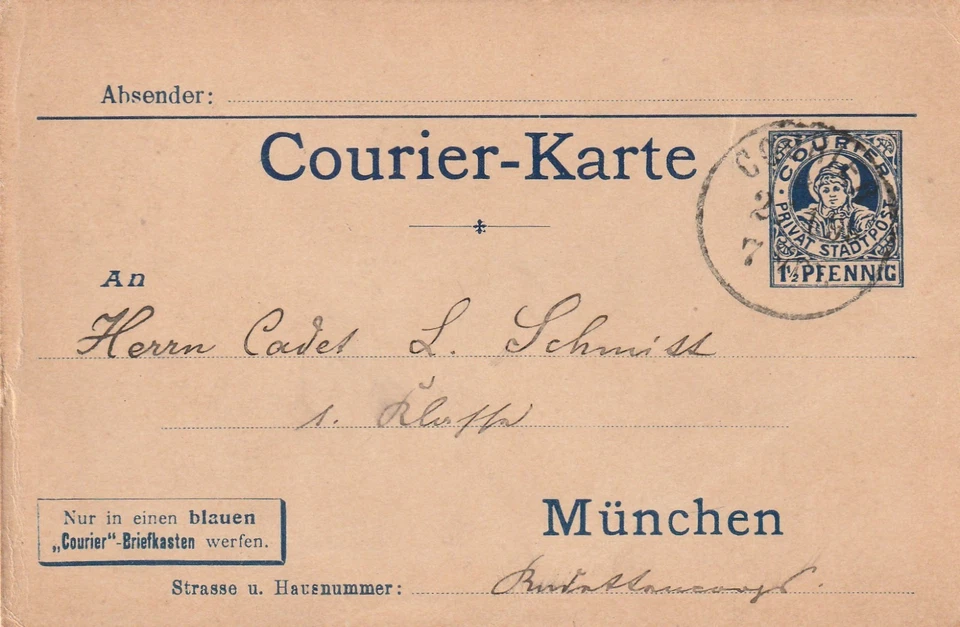 Absender:
Courier-Karte
COURIER
PRIVAT STADTPOST
1½ PFENNIG
2
7
An
Herrn Cadet L. Schmitt
1. Klasse
Nur in einen blauen
„Courier“-Briefkasten werfen.
München
Strasse u. Hausnummer: